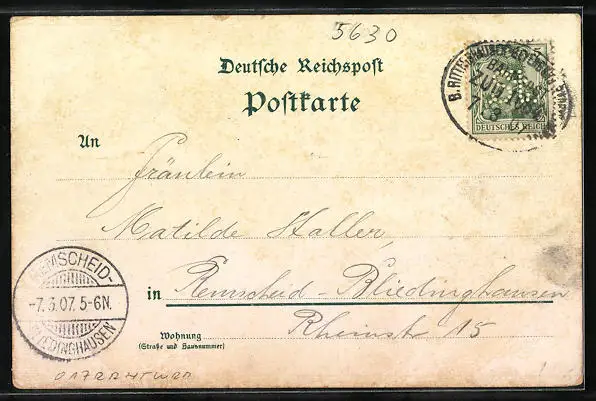 5630
Deutsche Reichspost
Postkarte
B. RITTERSHAUSEN
ZUG
7 3
DEUTSCHES REICH
An
Fräulein
Matilde Haller,
in Remscheid-Bliedinghausen
Rheinstr 15
Wohnung
(Straße und Hausnummer)
REMSCHEID-
-7.3.07. 5-6N.
BLIEDINGHAUSEN